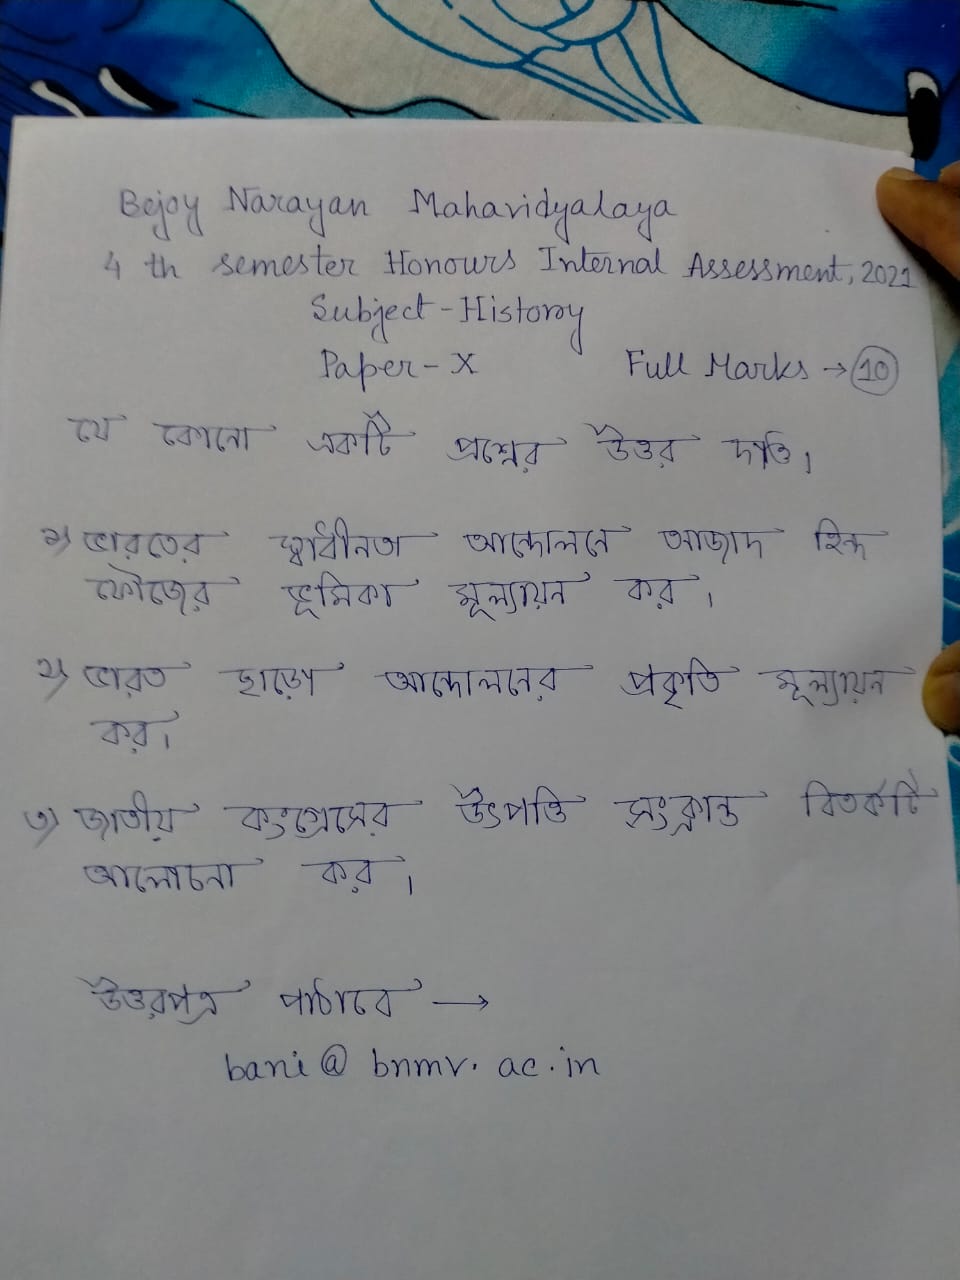 Bejoy Narayan Mahavidyalaya
4 th semester Honours Internal Assessment, 2021
Subject - History
Paper - X Full Marks → 10
যে কোনো একটি প্রশ্নের উত্তর দাও।
১) ভারতের স্বাধীনতা আন্দোলনে আজাদ হিন্দ
ফৌজের ভূমিকা মূল্যায়ন কর।
২) ভারত ছাড়ো আন্দোলনের প্রকৃতি মূল্যায়ন
কর।
৩) জাতীয় কংগ্রেসের উৎপত্তি সংক্রান্ত বিতর্কটি
আলোচনা কর।
উত্তরপত্র পাঠাবে →
bani@bnmv.ac.in